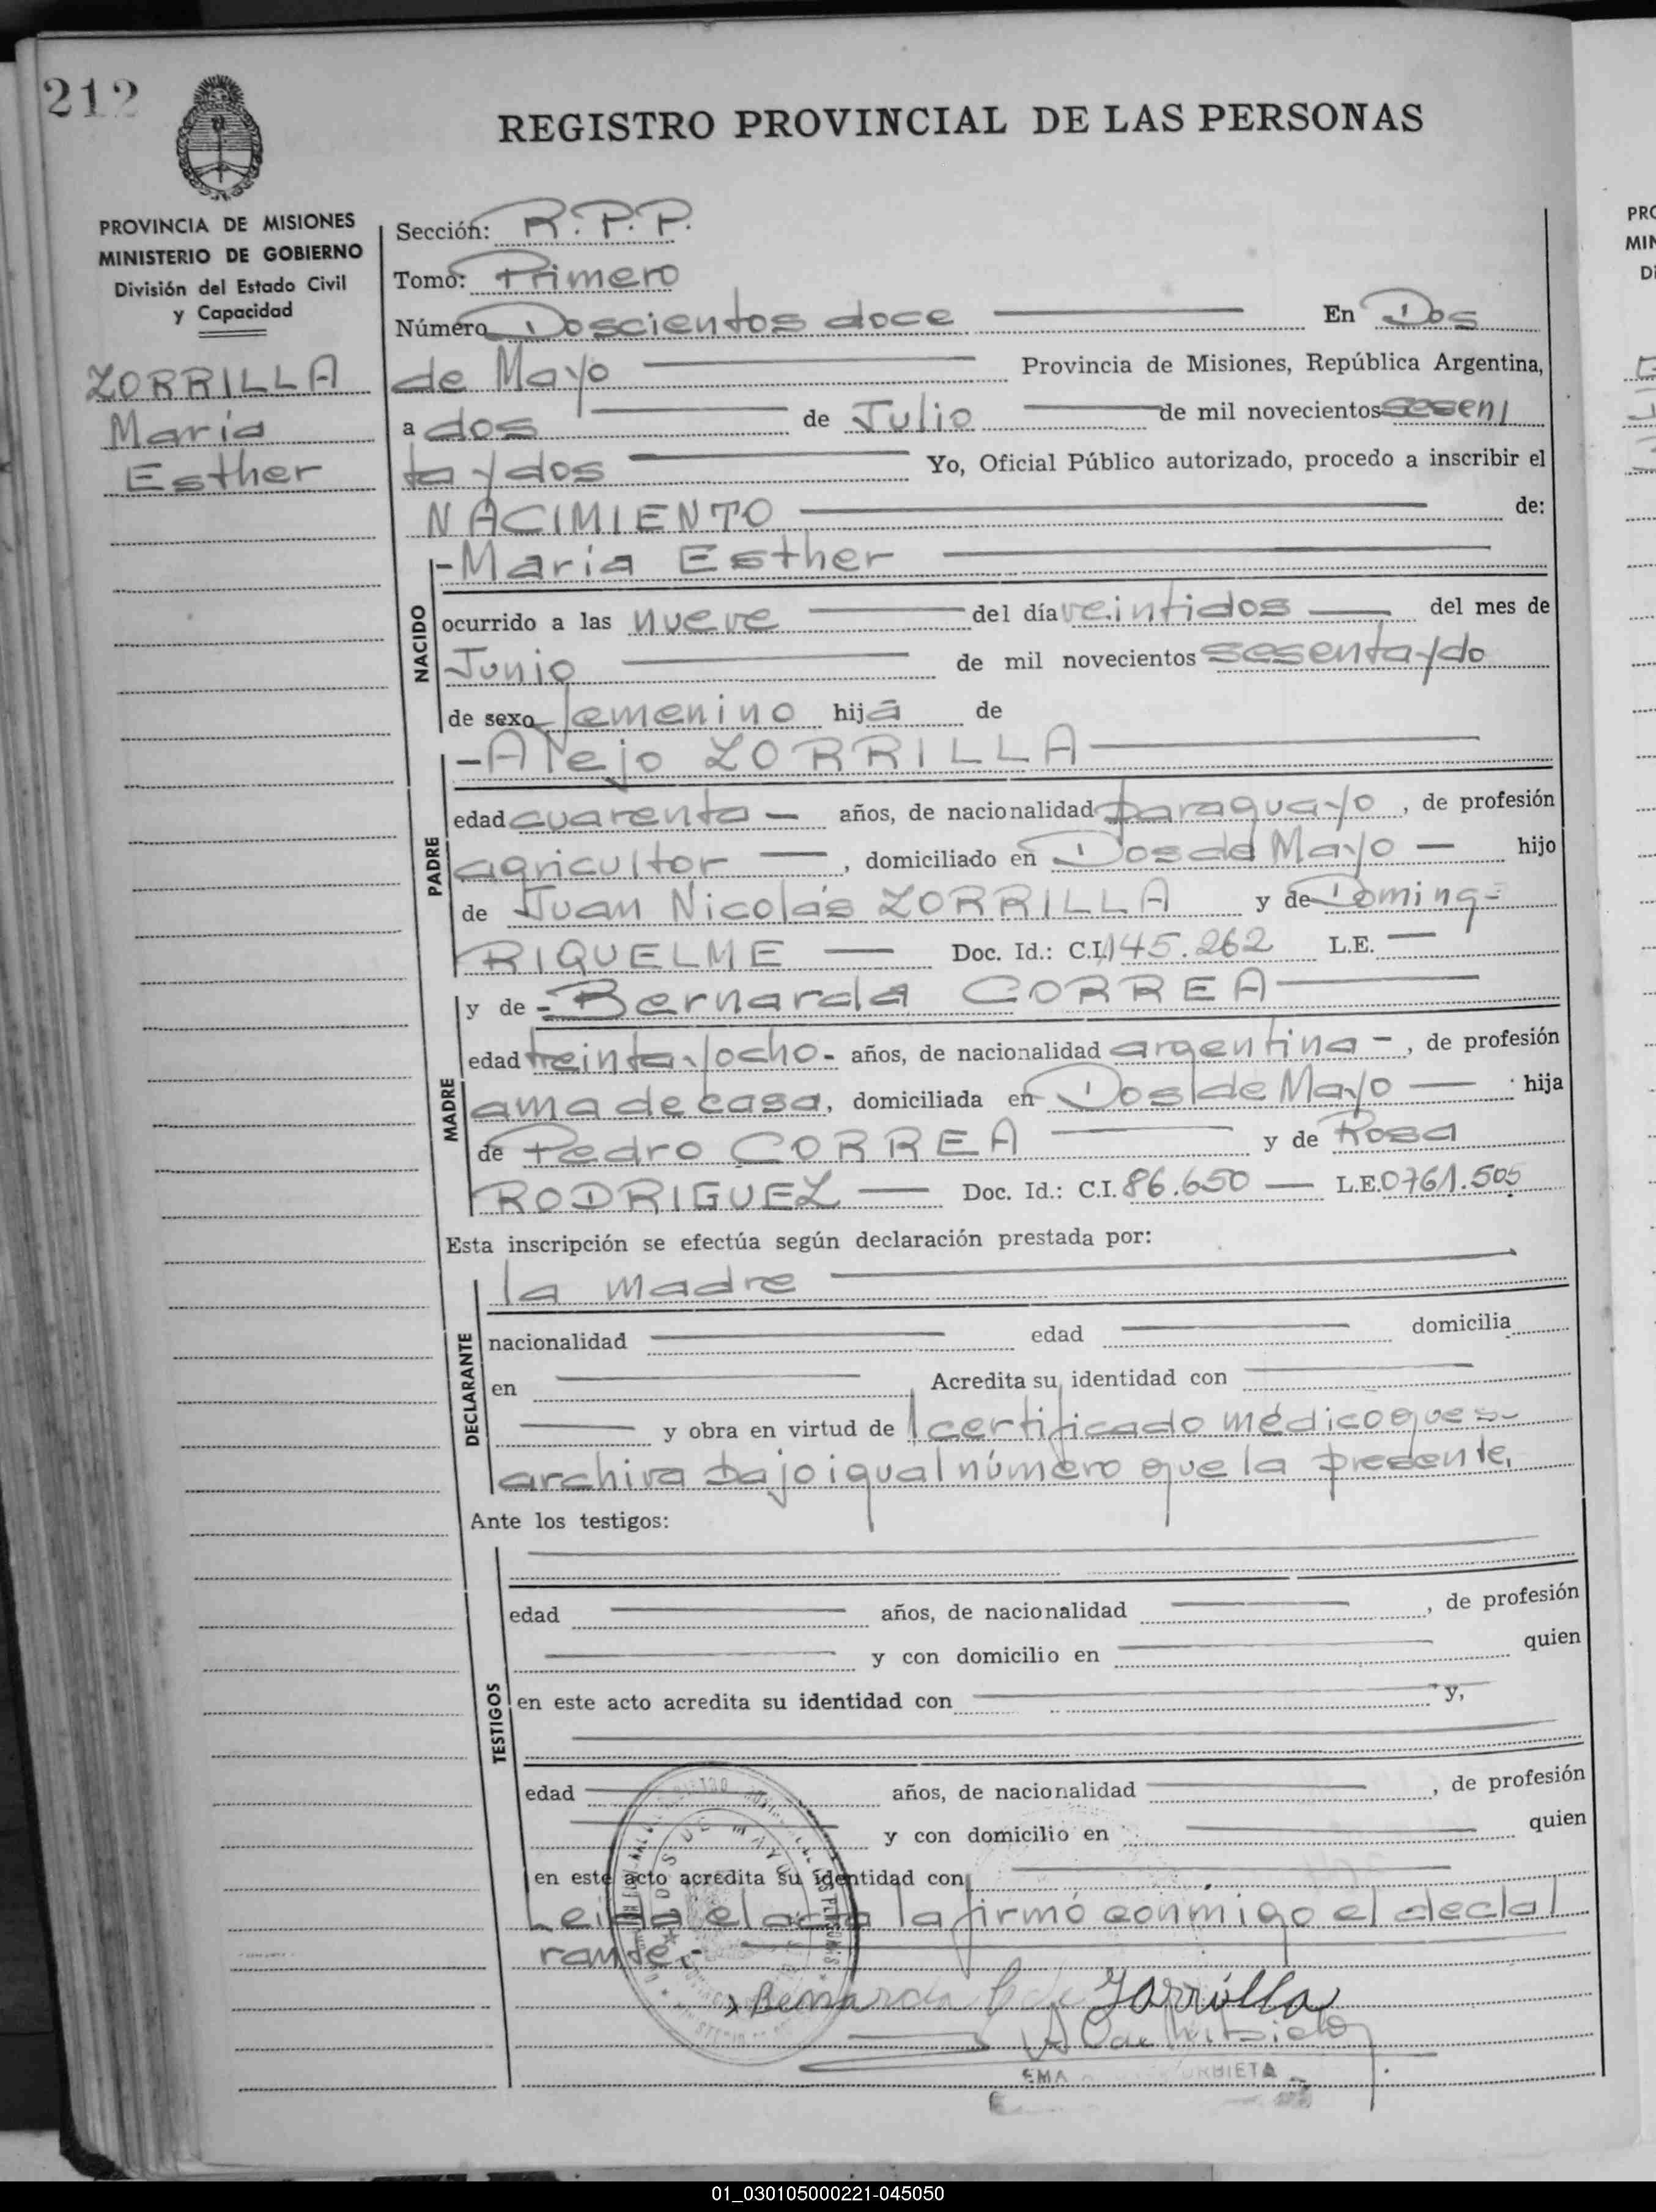 212
REGISTRO PROVINCIAL DE LAS PERSONAS
PROVINCIA DE MISIONES
MINISTERIO DE GOBIERNO
División del Estado Civil
y Capacidad
ZORRILLA
María
Esther
Sección: R.P.P.
Tomo: Primero
Número Doscientos doce En Dos
de Mayo Provincia de Misiones, República Argentina,
a dos de Julio de mil novecientos sesen
ta y dos Yo, Oficial Público autorizado, procedo a inscribir el
NACIMIENTO de:
NACIDO
-María Esther
ocurrido a las nueve del día veintidos del mes de
Junio de mil novecientos sesenta y do
de sexo femenino hija de
PADRE
-Alejo ZORRILLA
edad cuarenta - años, de nacionalidad paraguayo, de profesión
agricultor, domiciliado en Dos de Mayo - hijo
de Juan Nicolás ZORRILLA y de Doming
RIQUELME Doc. Id.: C.I. 145.262 L.E. —
MADRE
y de - Bernarda CORREA
edad treinta y ocho - años, de nacionalidad argentina -, de profesión
ama de casa, domiciliada en Dos de Mayo hija
de Pedro CORREA y de Rosa
RODRIGUEZ Doc. Id.: C.I. 86.650 — L.E. 0761.505
Esta inscripción se efectúa según declaración prestada por:
DECLARANTE
la madre
nacionalidad edad domicilia
en Acredita su identidad con
y obra en virtud de certificado médico que s-
archiva bajo igual número que la presente,
Ante los testigos:
TESTIGOS
edad años, de nacionalidad , de profesión
y con domicilio en quien
en este acto acredita su identidad con y,
edad años, de nacionalidad , de profesión
y con domicilio en quien
en este acto acredita su identidad con
Leida el acta la firmó conmigo el decla
rante.-
DOS DE MAYO
x Bernarda C de Zorrilla
EMA URBIETA
01_030105000221-045050